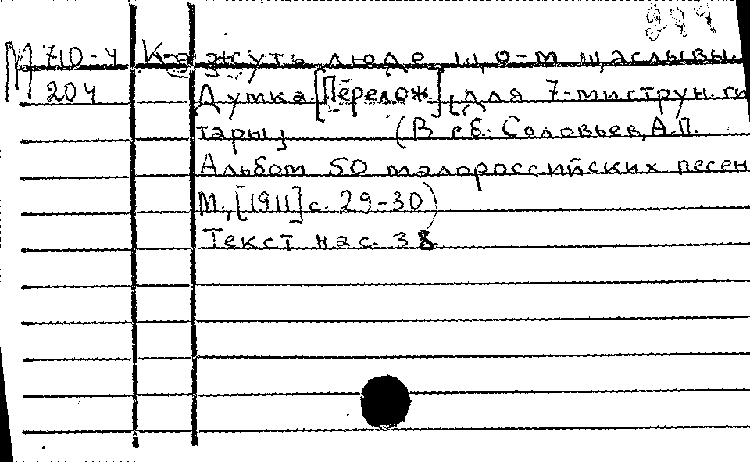 М 710-4 Кажуть люде що-м щаслывы.
204 Думка [Перелож], для 7-миструн. ги
тары; (В сб. Соловьев, А.П.
Альбом 50 малороссийских песен
М., [1911] с. 29-30)
Текст на с. 38